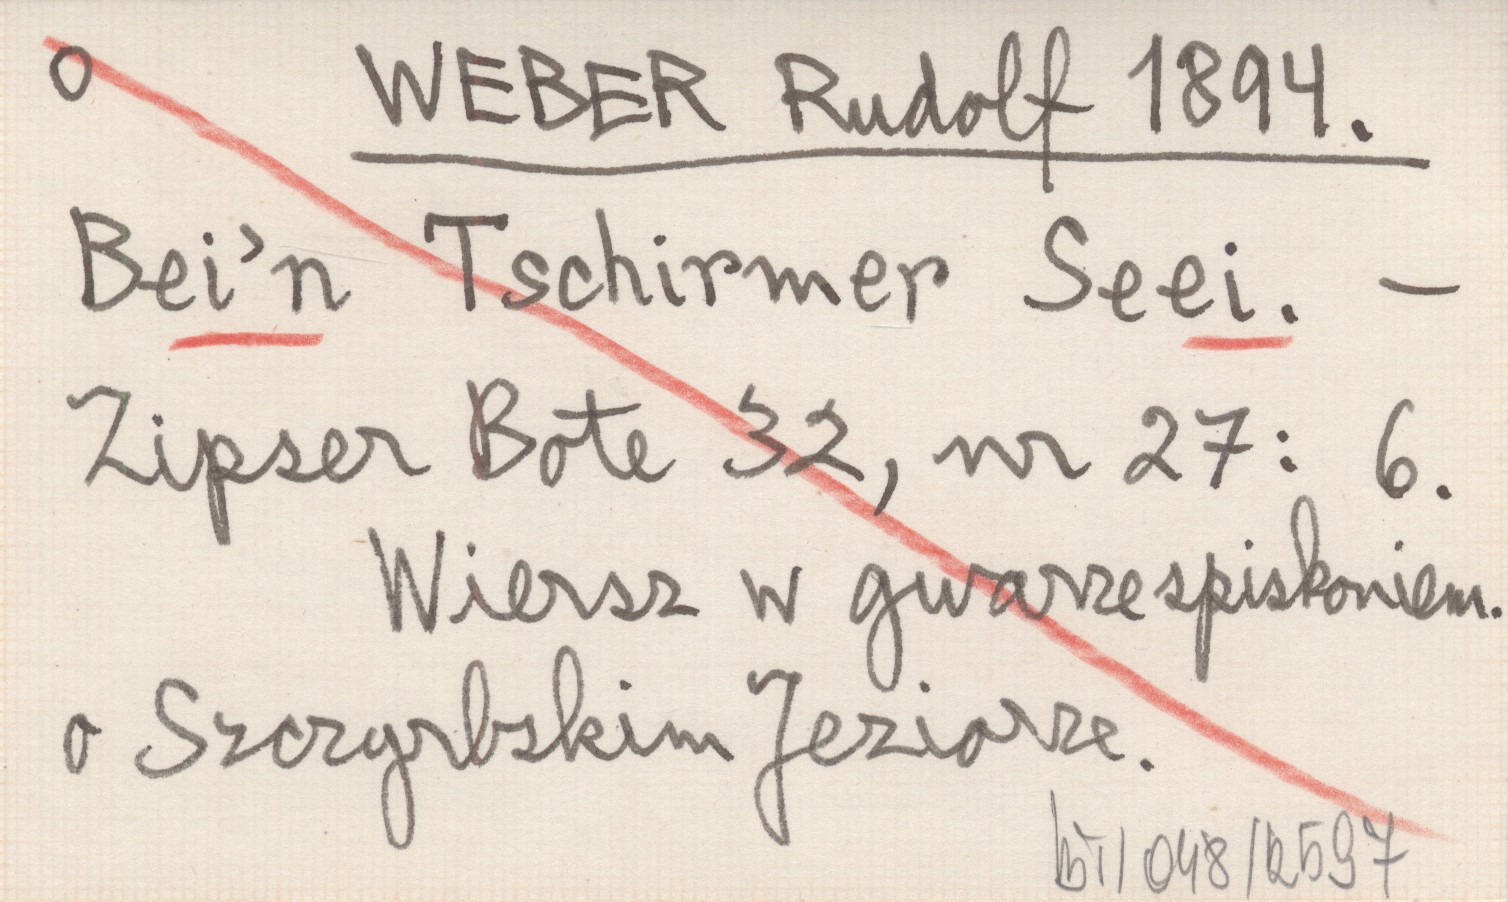 o WEBER Rudolf 1894.
Bei'n Tschirmer Seei. —
Zipser Bote 32, nr 27: 6.
Wiersz w gwarze spiskoniem.
o Szczyrbskim Jeziorze.